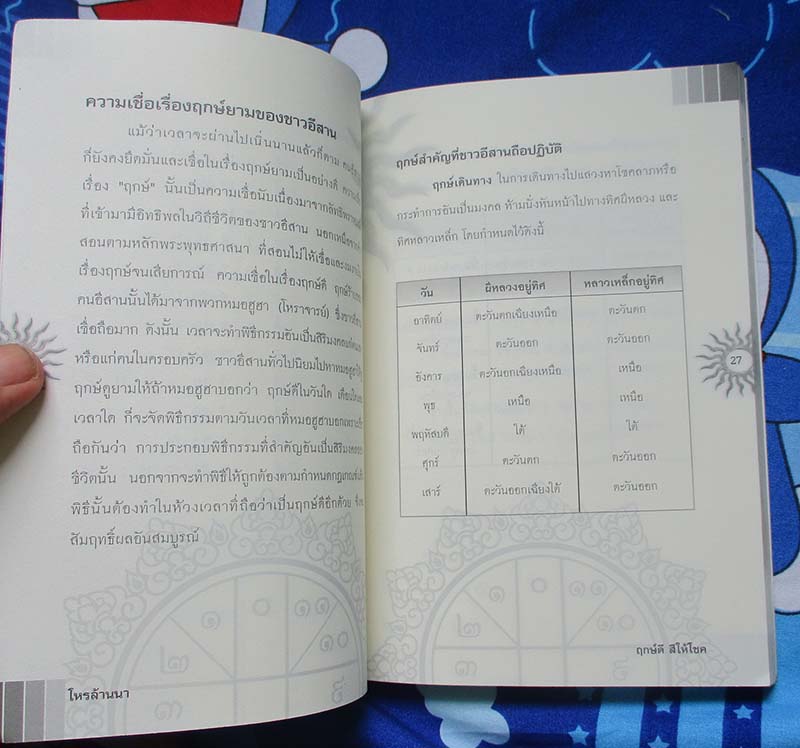 ความเชื่อเรื่องฤกษ์ยามของชาวอีสาน
แม้ว่าเวลาจะผ่านไปเนิ่นนานแล้วก็ตาม
ก็ยังคงยึดมั่นและเชื่อในเรื่องฤกษ์ยามเป็นอย่างดี
เรื่อง "ฤกษ์" นั้นเป็นความเชื่อนับเนื่องมาจาก
ที่เข้ามามีอิทธิพลในวิถีชีวิตของชาวอีสาน นอกเหนือจาก
สอนตามหลักพระพุทธศาสนา ที่สอนไม่ให้เชื่อและ
เรื่องฤกษ์จนเสียการณ์ ความเชื่อในเรื่องฤกษ์ดี
คนอีสานนั้นได้มาจากพวกหมอฮูฮา (โหราจารย์)
เชื่อถือมาก ดังนั้น เวลาจะทำพิธีกรรมอันเป็นสิริมงคล
หรือแก่คนในครอบครัว ชาวอีสานทั่วไปนิยมไปหา
ฤกษ์ดูยามให้ถ้าหมอฮูฮาบอกว่า ฤกษ์ดีในวันใด
เวลาใด ก็จะจัดพิธีกรรมตามวันเวลาที่หมอฮูฮาบอก
ถือกันว่า การประกอบพิธีกรรมที่สำคัญอันเป็นสิริมงคล
ชีวิตนั้น นอกจากจะทำพิธีให้ถูกต้องตามกำหนดกฎเกณฑ์
พิธีนั้นต้องทำในห้วงเวลาที่ถือว่าเป็นฤกษ์ดีอีกด้วย
สัมฤทธิ์ผลอันสมบูรณ์
๑ ๑๐ ๑๑
๒
๓
โหรล้านนา
ฤกษ์สำคัญที่ชาวอีสานถือปฏิบัติ
ฤกษ์เดินทาง ในการเดินทางไปแสวงหาโชคลาภหรือ
กระทำการอันเป็นมงคล ห้ามนั่งหันหน้าไปทางทิศผีหลวง และ
ทิศหลาวเหล็ก โดยกำหนดไว้ดังนี้
วัน ผีหลวงอยู่ทิศ หลาวเหล็กอยู่ทิศ
อาทิตย์ ตะวันตกเฉียงเหนือ ตะวันตก
จันทร์ ตะวันออก ตะวันออก
อังคาร ตะวันออกเฉียงเหนือ เหนือ
พุธ เหนือ เหนือ
พฤหัสบดี ใต้ ใต้
ศุกร์ ตะวันตก ตะวันออก
เสาร์ ตะวันออกเฉียงใต้ ตะวันออก
27
๑ ๑๐ ๑๑
๒
๓
ฤกษ์ดี สีให้โชค